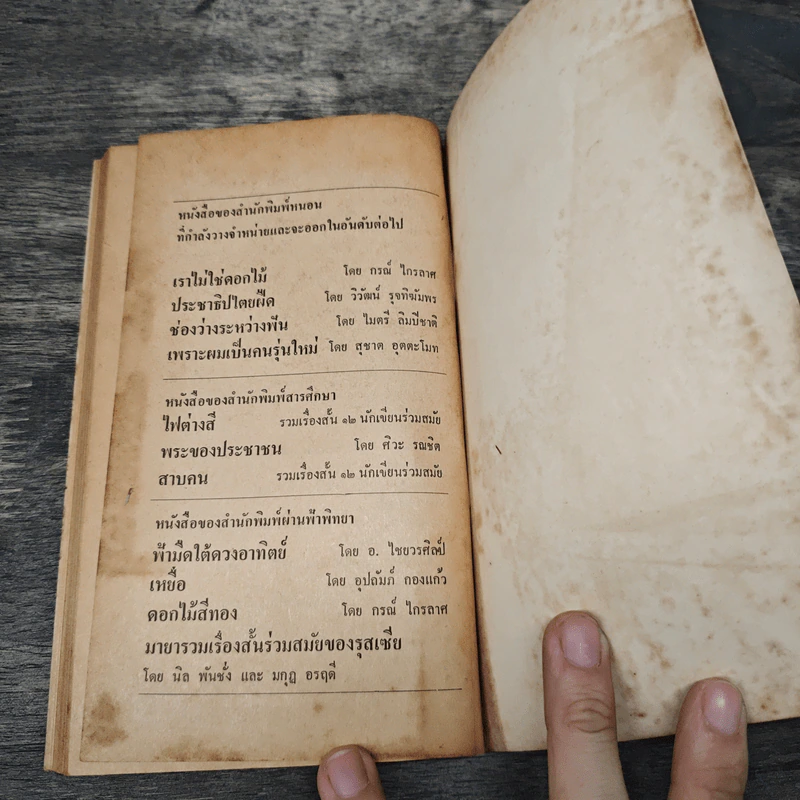 หนังสือของสำนักพิมพ์หนอน
ที่กำลังวางจำหน่ายและจะออกในอันดับต่อไป
เราไม่ใช่ดอกไม้ โดย กรณ์ ไกรลาศ
ประชาธิปไตยฝืด โดย วิวัฒน์ รุจทิฆัมพร
ช่องว่างระหว่างฟัน โดย ไมตรี ลิมปิชาติ
เพราะผมเป็นคนรุ่นใหม่ โดย สุชาต อุตตะโมท
หนังสือของสำนักพิมพ์สารศึกษา
ไฟต่างสี รวมเรื่องสั้น ๑๒ นักเขียนร่วมสมัย
พระของประชาชน โดย ศิวะ รณชิต
สาบคน รวมเรื่องสั้น ๑๒ นักเขียนร่วมสมัย
หนังสือของสำนักพิมพ์ผ่านฟ้าพิทยา
ฟ้ามืดใต้ดวงอาทิตย์ โดย อ. ไชยวรศิลป์
เหยื่อ โดย อุปถัมภ์ กองแก้ว
ดอกไม้สีทอง โดย กรณ์ ไกรลาศ
มายารวมเรื่องสั้นร่วมสมัยของรุสเซีย
โดย นิล พันชั่ง และ มกุฎ อรฤดี